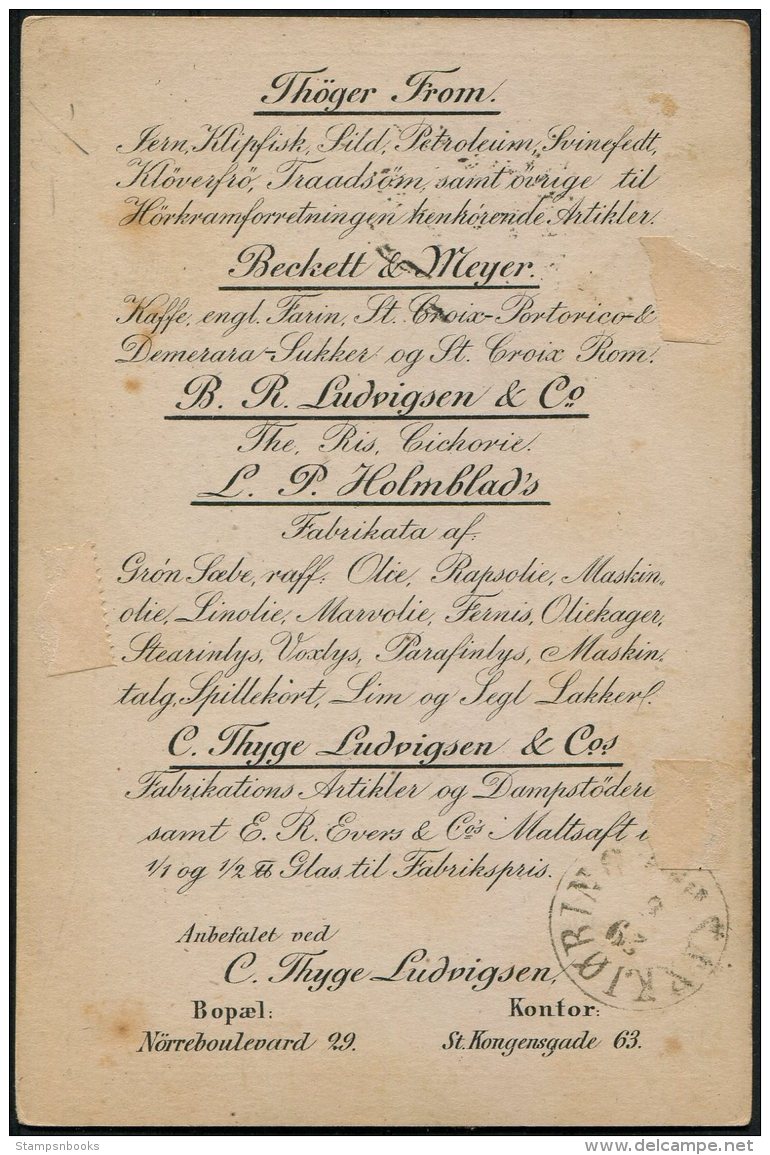 Thöger From.
Jern, Klipfisk, Sild, Petroleum, Svinefedt,
Klöverfrö, Traadsöm, samt övrige til
Hörkramforretningen henhörende Artikler.
Beckett & Meyer.
Kaffe, engl. Farin, St. Croix-Portorico-&
Demerara-Sukker og St. Croix Rom.
B. R. Ludvigsen & Co
The, Ris, Cichorie.
L. P. Holmblad's
Fabrikata af:
Grön Sæbe, raff. Olie, Rapsolie, Maskin„
olie, Linolie, Marvolie, Fernis, Oliekager,
Stearinlys, Voxlys, Parafinlys, Maskin„
talg, Spillekort, Lim og Segl Lakker.
C. Thyge Ludvigsen & Cos
Fabrikations Artikler og Dampstöderi
samt E. R. Evers & Co's Maltsaft i
1/1 og 1/2 ℔ Glas til Fabrikspris.
Anbefalet ved
C. Thyge Ludvigsen,
Bopæl: Kontor:
Nörreboulevard 29. St. Kongensgade 63.
KJØRING
Stampsnbooks
delcampe.net